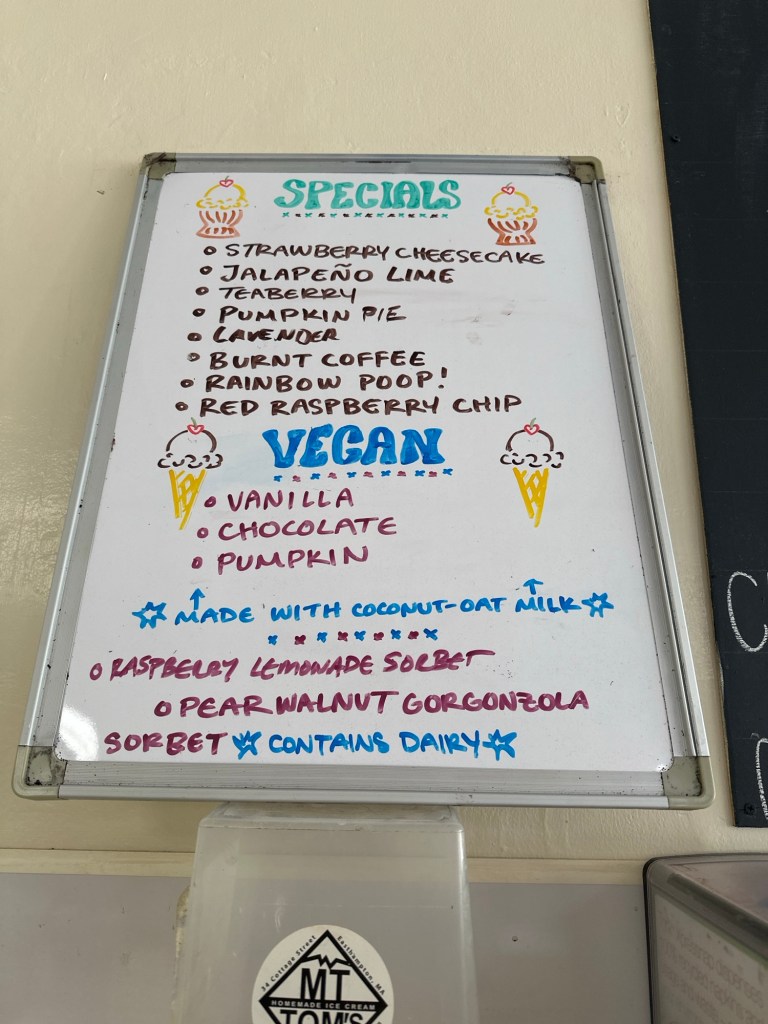 SPECIALS
• STRAWBERRY CHEESECAKE
• JALAPEÑO LIME
• TEABERRY
• PUMPKIN PIE
• LAVENDER
• BURNT COFFEE
• RAINBOW POOP!
• RED RASPBERRY CHIP
VEGAN
• VANILLA
• CHOCOLATE
• PUMPKIN
☆ MADE WITH COCONUT-OAT MILK ☆
• RASPBERRY LEMONADE SORBET
• PEAR WALNUT GORGONZOLA
SORBET ☆ CONTAINS DAIRY ☆
34 Cottage Street Easthampton, MA
MT
HOMEMADE ICE CREAM
TOM'S